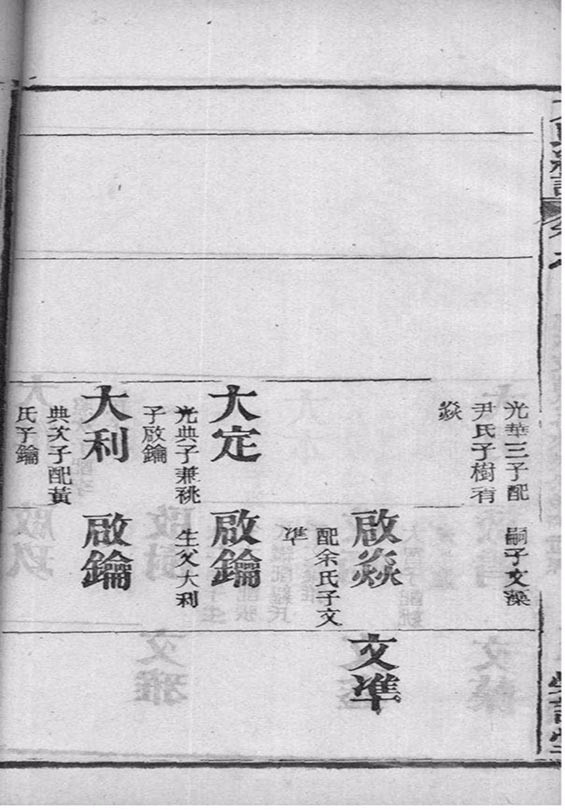 光華三子配
尹氏子樹有
焱
嗣子文藻
啟焱
配余氏子文
準
文準
大定
光典子兼祧
子啟鑰
啟鑰
生父大利
大利
典次子配黃
氏子鑰
啟鑰